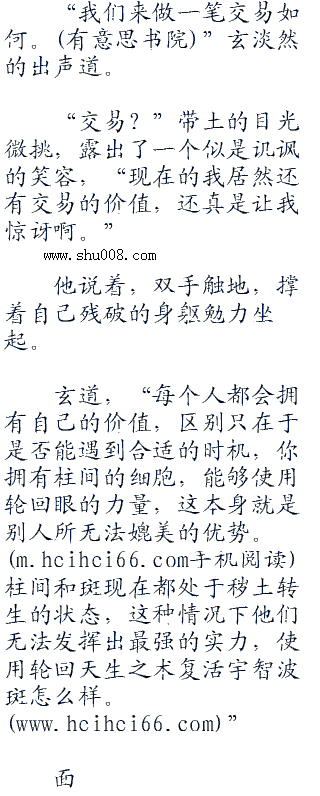 “我们来做一笔交易如
何。(有意思书院)”玄淡然
的出声道。
“交易？”带土的目光
微挑，露出了一个似是讥讽
的笑容，“现在的我居然还
有交易的价值，还真是让我
惊讶啊。”
www.shu008.com
他说着，双手触地，撑
着自己残破的身躯勉力坐
起。
玄道，“每个人都会拥
有自己的价值，区别只在于
是否能遇到合适的时机，你
拥有柱间的细胞，能够使用
轮回眼的力量，这本身就是
别人所无法媲美的优势。
(m.hcihci66.com手机阅读)
柱间和斑现在都处于秽土转
生的状态，这种情况下他们
无法发挥出最强的实力，使
用轮回天生之术复活宇智波
斑怎么样。
(www.hcihci66.com)”
面